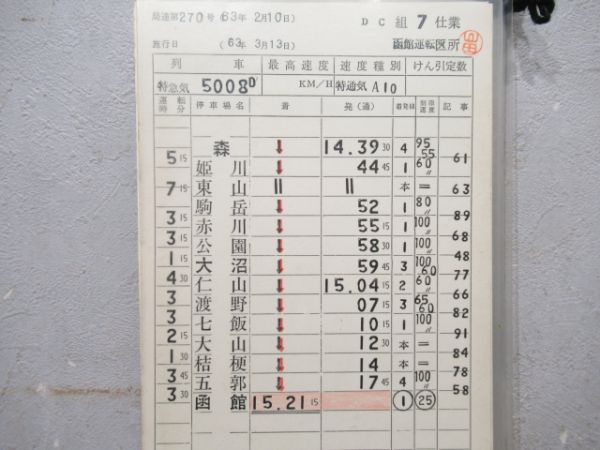 局達第270号(63年 2月10日)
DC 組 7 仕業
施行日 (63年 3月13日) 函館運転区所
列 車 最高速度 速度種別 けん引定数
特急気 5008D KM/H 特通気 A10
運転時分 停車場名 着 発(通) 着発線 制限速度 記事
森 ↓ 14.39 30 4 95 55
5 15 61
姫川 ↓ 44 45 1 60 〃
7 15 東山 || || 本 = 63
駒岳 ↓ 52 1 80 〃
3 15 89
赤川 ↓ 55 15 1 100 〃
3 15 68
公園 ↓ 58 30 1 100 〃
1 15 48
大沼 ↓ 59 45 3 100 60
4 30 77
仁山 ↓ 15.04 15 2 60 〃
3 66
渡野 ↓ 07 15 3 65 60
3 82
七飯 ↓ 10 15 1 100 〃
2 15 91
大山 ↓ 12 30 本 =
1 30 84
桔梗 ↓ 14 本 =
3 45 78
五郭 ↓ 17 45 4 100 〃
3 30 58
函館 15.21 15 1 25